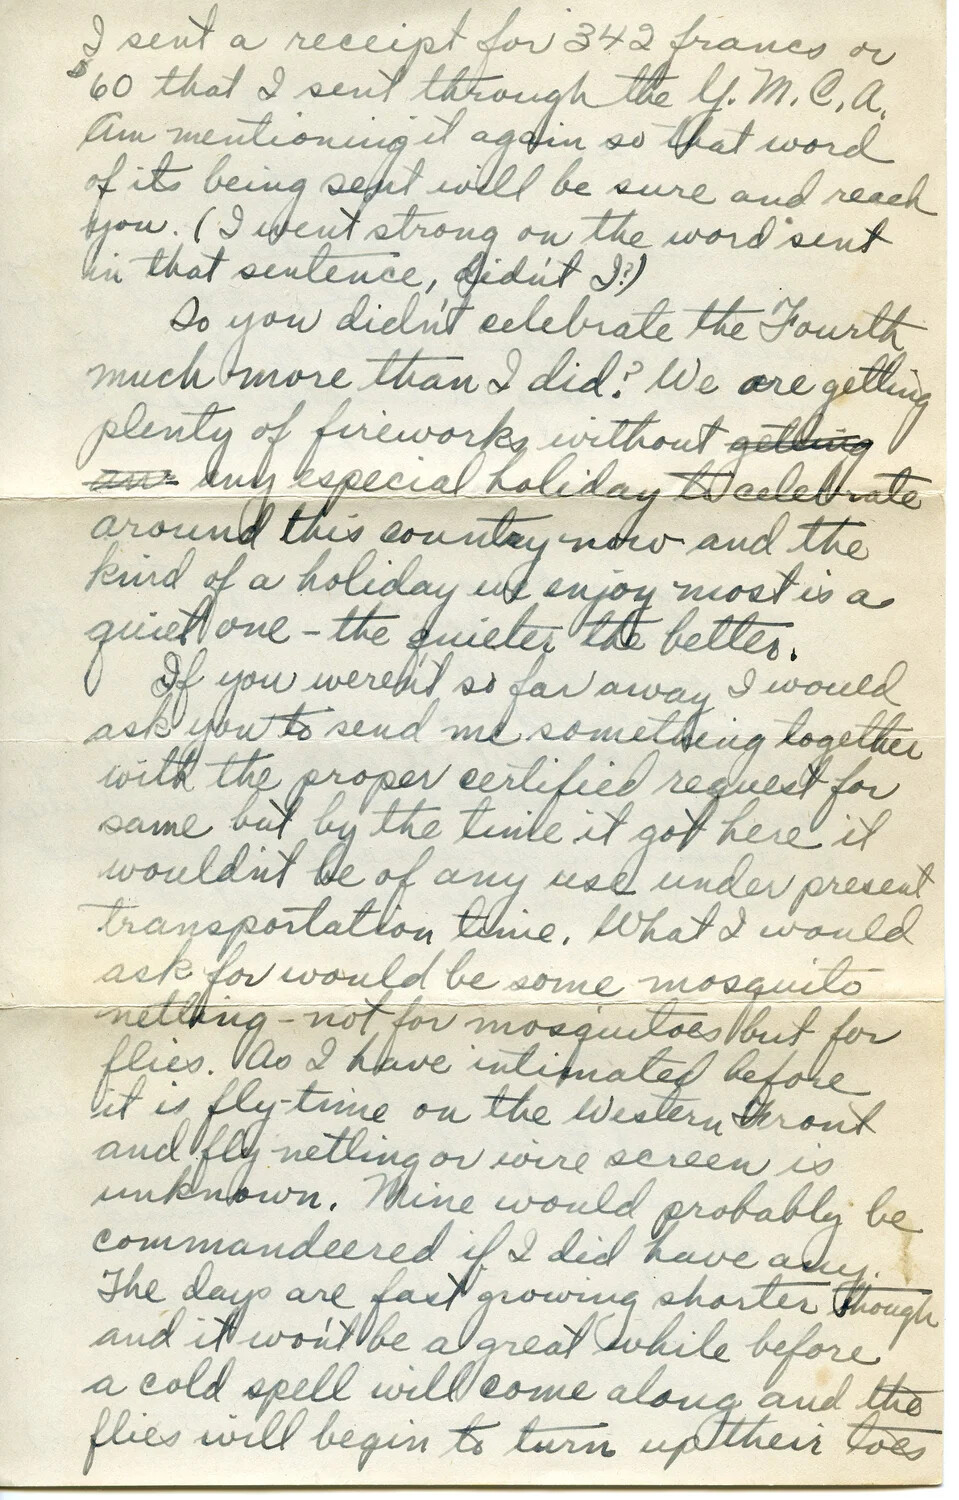 I sent a receipt for 342 francs or
$60 that I sent through the Y.M.C.A.
Am mentioning it again so that word
of its being sent will be sure and reach
you. (I went strong on the word "sent
in that sentence, didn't I?)
So you didn't celebrate the Fourth
much more than I did? We are getting
plenty of fireworks without getting
any any especial holiday to celebrate
around this country now and the
kind of a holiday we enjoy most is a
quiet one - the quieter the better.
If you weren't so far away I would
ask you to send me something together
with the proper certified request for
same but by the time it got here it
wouldn't be of any use under present
transportation time. What I would
ask for would be some mosquito
netting - not for mosquitoes but for
flies. As I have intimated before
it is fly-time on the Western Front
and fly netting or wire screen is
unknown. Mine would probably be
commandeered if I did have any.
The days are fast growing shorter though
and it won't be a great while before
a cold spell will come along and the
flies will begin to turn up their toes